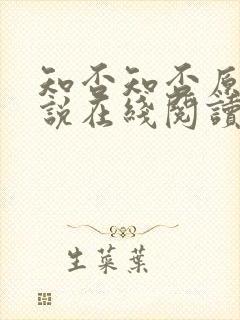 知否知否原
説在綫閱讀
生菜葉